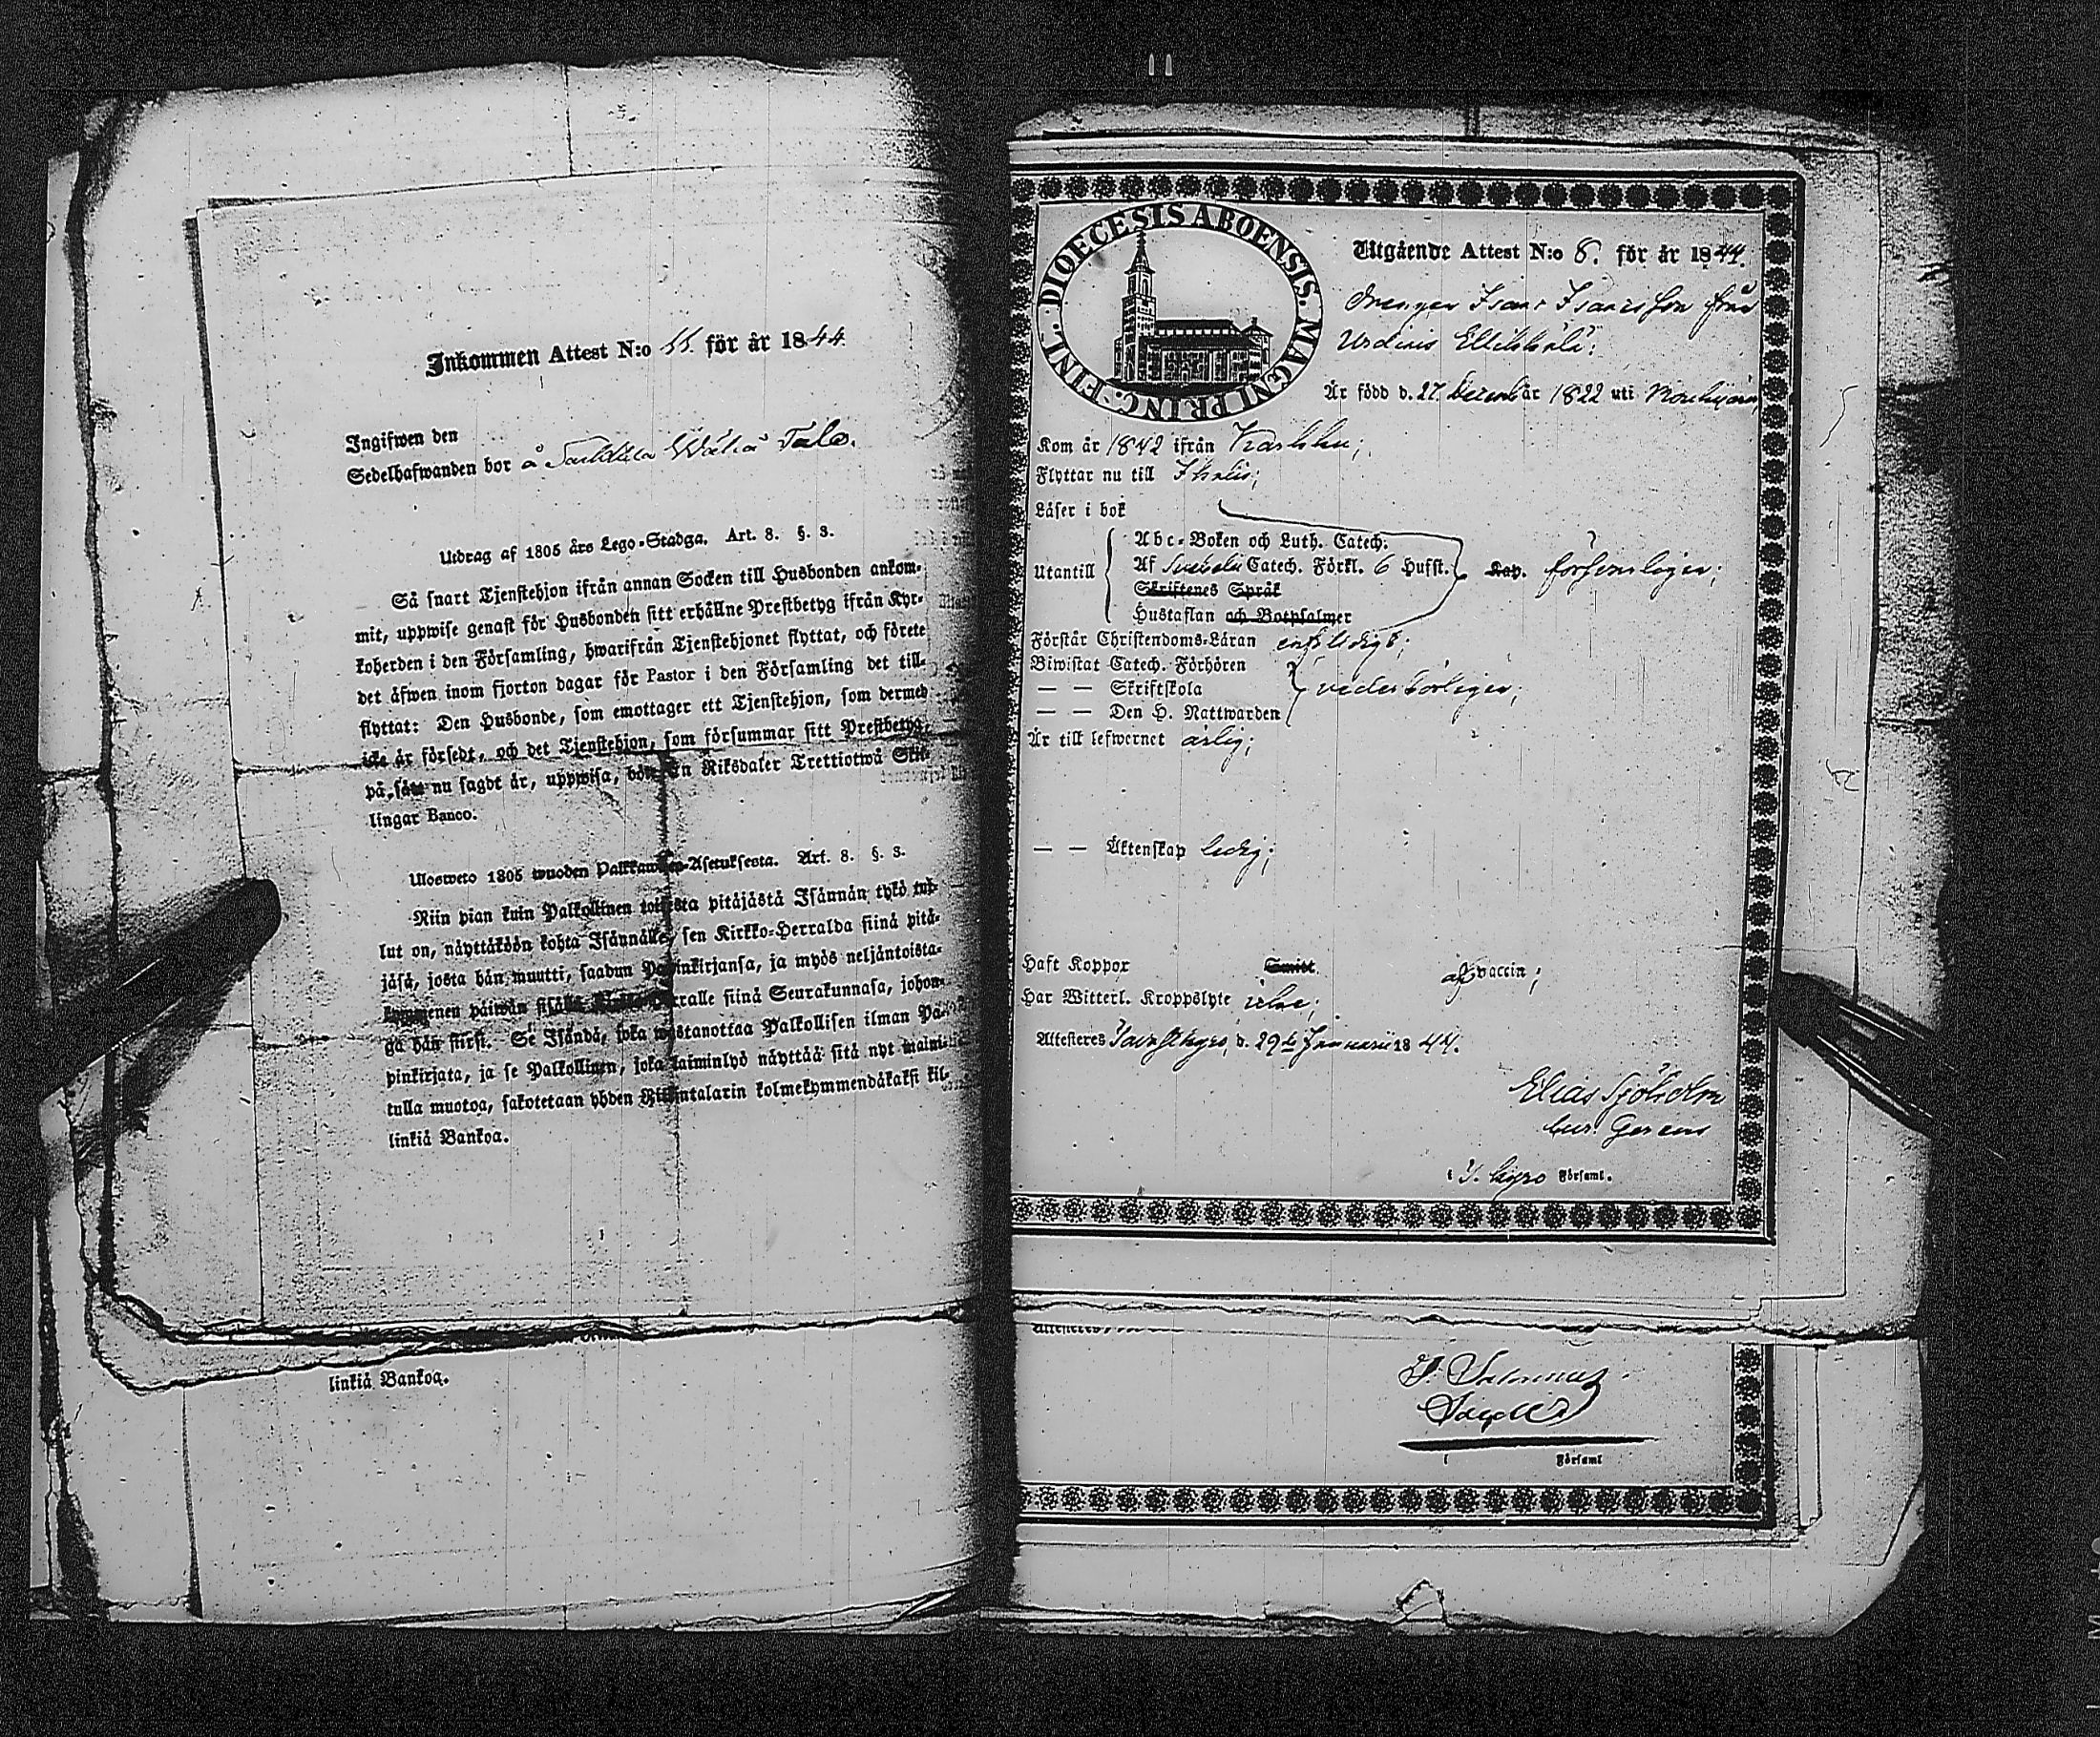 Inkommen Attest N:o 55. för år 1844
Ingifwen den
Sedelhafwanden bor å Wähä Talo.
Utdrag af 1805 års Lego-Stadga. Art. 8. §. 3.
Så snart Tjenstehjon ifrån annan Socken till Husbonden ankom-
mit, uppwise genast för Husbonden sitt erhållne Prestbetyg ifrån Kyr-
koherden i den Församling, hwarifrån Tjenstehjonet flyttat, och förete
det äfwen inom fjorton dagar för Pastor i den Församling det till-
flyttat: Den Husbonde, som emottager ett Tjenstehjon, som dermed
icke är försedt, och det Tjenstehjon, som försummar sitt Prestbetyg,
på sätt nu sagdt är, uppwisa, böte En Riksdaler Trettiotwå Skil-
lingar Banco.
Ulosweto 1805 wuoden Palkkawäen-Asetuksesta. Art. 8. §. 3.
Niin pian kuin Palkollinen toisesta pitäjästä Isännän tykö tul-
lut on, näyttäköön kohta Isännälle, sen Kirkko-Herralda siinä pitä-
jäsä, josta hän muutti, saadun Papinkirjansa, ja myös neljäntoista-
kymmenen päiwän sisällä Kirkko-Herralle siinä Seurakunnasa, johon-
ga hän siirsi. Se Isändä, joka wastanottaa Palkollisen ilman Pa-
pinkirjata, ja se Palkollinen, joka laiminlyö näyttää sitä nyt maini-
tulla muotoa, sakotetaan yhden Riikintalarin kolmekymmendäkaksi kil-
linkiä Bankoa.
linkiä Bankoa.
DIOECESIS ABOENSIS. MAGNI PRINC. FINL.
Utgående Attest N:o 8. för år 1844.
Drengen Isaac Isaacsson från
Är född d. 27 Decemb år 1822 uti
Kom år 1842 ifrån Karkku;
Flyttar nu till Ikalis;
Läser i bok
Abc-Boken och Luth. Catech.
Utantill Af Svebelii Catech. Förkl. 6 Hufst. Kap. försvarligen;
Skriftenes Språk
Hustaflan och Botpsalmer
Förstår Christendoms-Läran enfaldigt;
Biwistat Catech. Förhören
— — Skriftskola vederbörligen;
— — Den H. Nattwarden
Är till lefwernet ärlig;
— — Äktenskap ledig;
Haft Koppor Smitt. af vaccin;
Har Witterl. Kroppslyte icke;
Attesteres Tavastkyro, d. 29de Januarii 1844.
Elias Sjöholm
Cur. Gerens
i T. Kyro Församl.
Församl